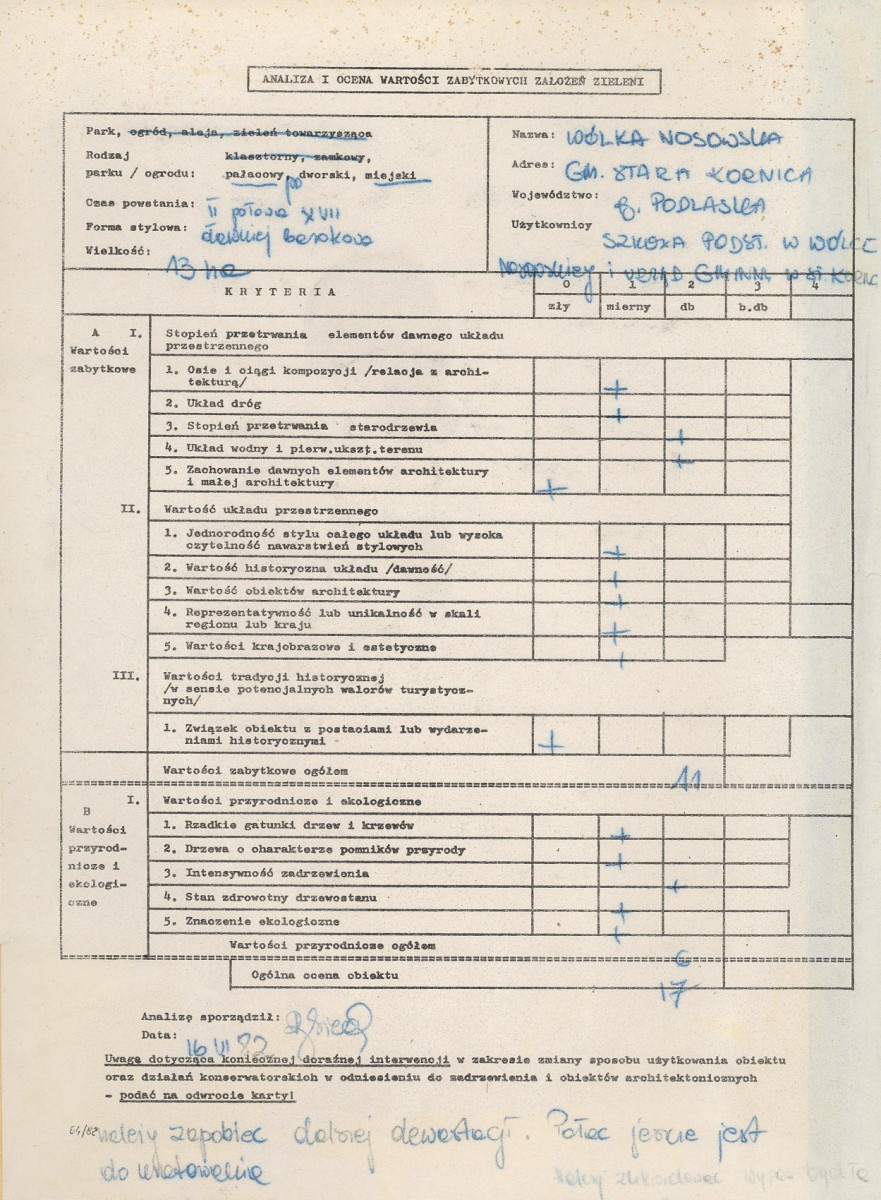 ANALIZA I OCENA WARTOŚCI ZABYTKOWYCH ZAŁOŻEŃ ZIELENI
Park, ogród, aleja, zieleń towarzysząca
Rodzaj klasztorny, zamkowy,
parku / ogrodu: pałacowy, dworski, miejski
Czas powstania: II połowa XVII
Forma stylowa: dawniej barokowa
Wielkość: 13 ha
Nazwa: WÓLKA NOSOWSKA
Adres: GM. STARA KORNICA
Województwo: B. PODLASKA
Użytkownicy SZKOŁA PODST. W WÓLCE
Nosowskiej i URZĄD GMINNY W ST. KORNIC
KRYTERIA
0 1 2 3 4
zły mierny db b.db
A I. Stopień przetrwania elementów dawnego układu
przestrzennego
Wartości
zabytkowe
1. Osie i ciągi kompozycji /relacja z archi-
tekturą/ +
2. Układ dróg +
3. Stopień przetrwania starodrzewia +
4. Układ wodny i pierw.ukszt.terenu +
5. Zachowanie dawnych elementów architektury
i małej architektury +
II. Wartość układu przestrzennego
1. Jednorodność stylu całego układu lub wysoka
czytelność nawarstwień stylowych +
2. Wartość historyczna układu /dawność/ +
3. Wartość obiektów architektury +
4. Reprezentatywność lub unikalność w skali
regionu lub kraju +
5. Wartości krajobrazowe i estetyczne +
III. Wartości tradycji historycznej
/w sensie potencjalnych walorów turystycz-
nych/
1. Związek obiektu z postaciami lub wydarze-
niami historycznymi +
Wartości zabytkowe ogółem 11
B I. Wartości przyrodnicze i ekologiczne
Wartości
przyrod-
nicze i
ekologi-
czne
1. Rzadkie gatunki drzew i krzewów +
2. Drzewa o charakterze pomników przyrody +
3. Intensywność zadrzewienia +
4. Stan zdrowotny drzewostanu +
5. Znaczenie ekologiczne +
Wartości przyrodnicze ogółem 6
Ogólna ocena obiektu 17
Analizę sporządził:
Data: 16 VI 82
Uwagę dotycząca koniecznej doraźnej interwencji w zakresie zmiany sposobu użytkowania obiektu
oraz działań konserwatorskich w odniesieniu do zadrzewienia i obiektów architektonicznych
- podać na odwrocie karty!
64/82 należy zapobiec dalszej dewastacji. Pałac jeszcze jest
do uratowania
należy zlikwidować wypas bydła